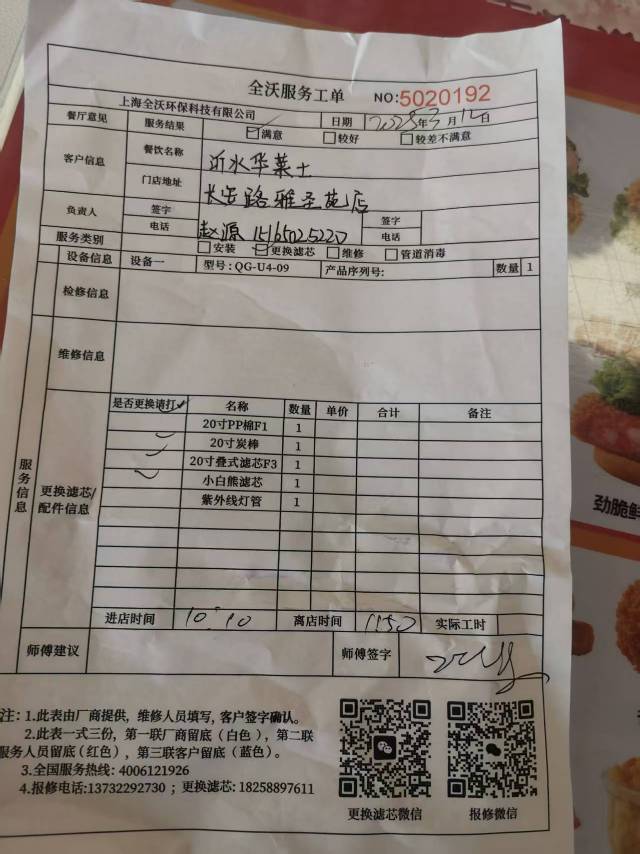 全沃服务工单 NO:5020192
上海全沃环保科技有限公司 日期 2025年3月12日
餐厅意见 服务结果 ☑满意 □较好 □较差不满意
客户信息 餐饮名称 沂水华莱士
门店地址 长安路雅圣苑店
负责人 签字 签字
电话 赵源 15165025220 电话
服务类别 □安装 ☑更换滤芯 □维修 □管道消毒
设备信息 设备一 型号:QG-U4-09 产品序列号: 数量 1
检修信息
维修信息
服务信息
更换滤芯/配件信息
是否更换请打✓ 名称 数量 单价 合计 备注
20寸PP棉F1 1
✓ 20寸炭棒 1
✓ 20寸叠式滤芯F3 1
✓ 小白熊滤芯 1
紫外线灯管 1
进店时间 10:10 离店时间 1150 实际工时
师傅建议 师傅签字
注：1.此表由厂商提供，维修人员填写，客户签字确认。
2.此表一式三份，第一联厂商留底（白色），第二联
服务人员留底(红色），第三联客户留底（蓝色）。
3.全国服务热线: 4006121926
4.报修电话:13732292730 ；更换滤芯: 18258897611
更换滤芯微信 报修微信
劲脆鲜